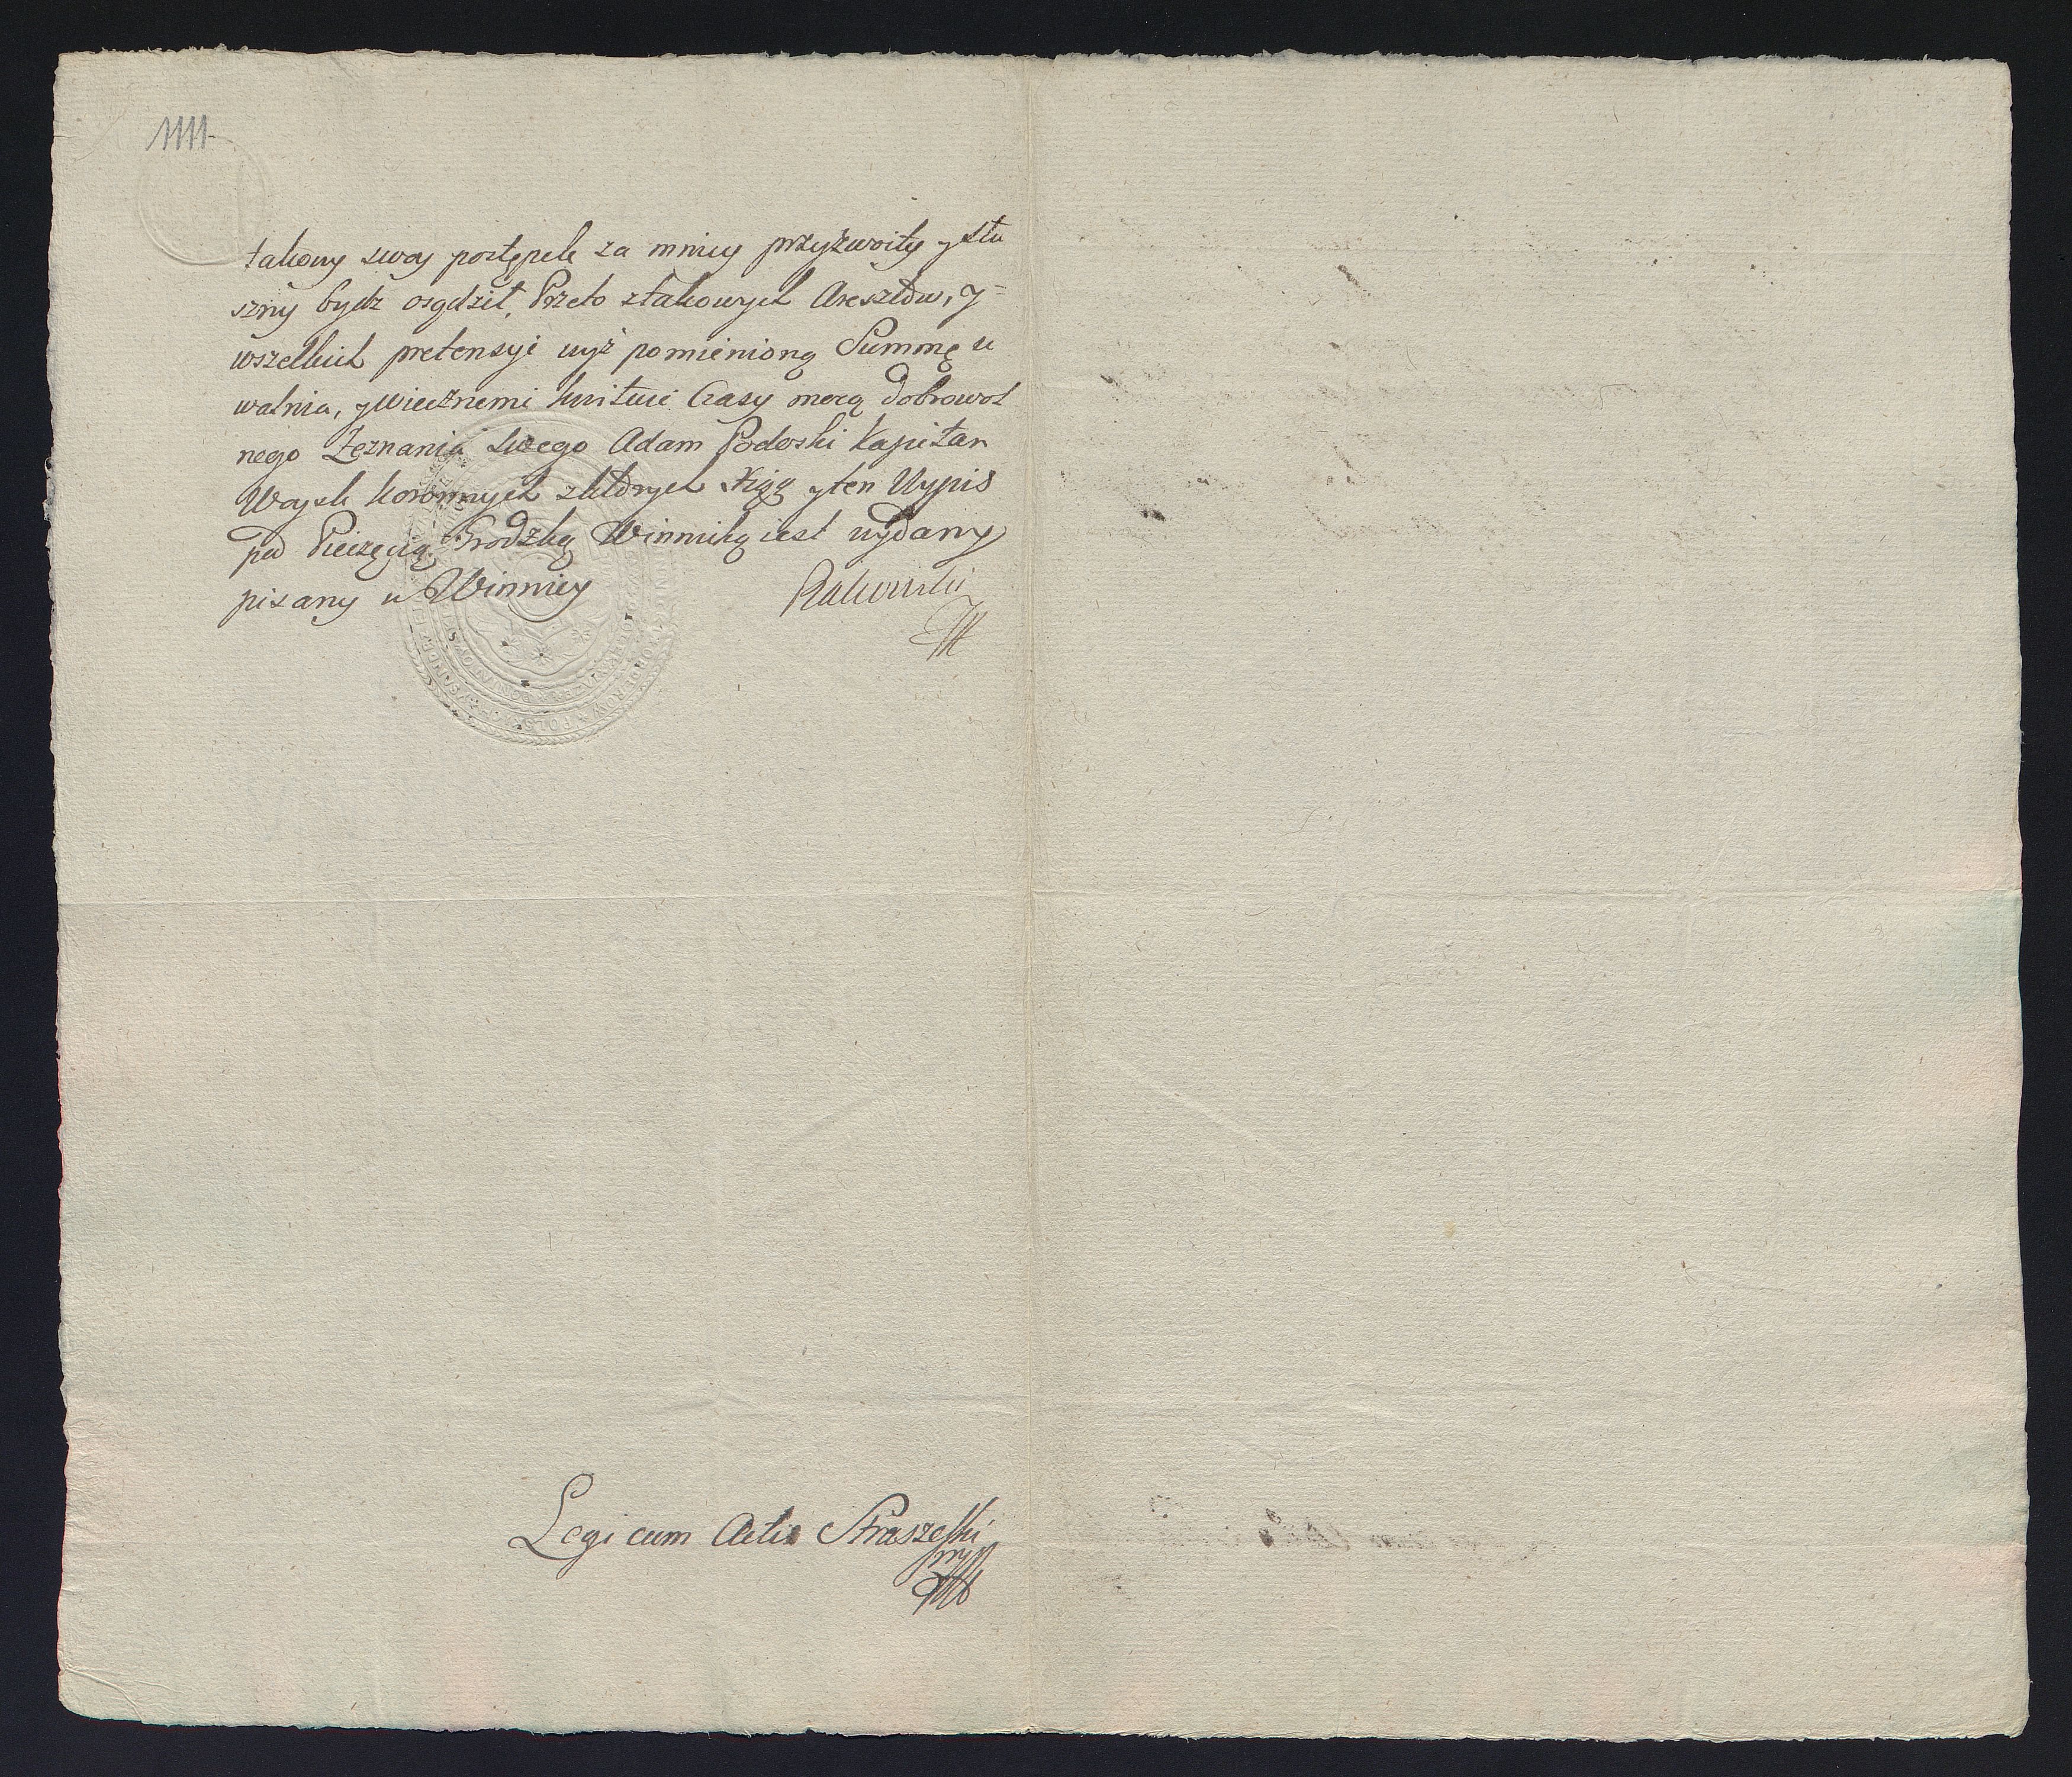 takowy swoy postępek za mniey przyzwoity y słu
szny bydz osądził, Przeto ztakowych Aresztów, y=
wszelkich pretensyi wyż pomienioną Summę u
walnia, y wiecznemi kwituie Czasy mocą dobrowol
nego Zeznania swego Adam Podoski Kapitan
Woysk koronnych zktórych Xiąg y ten Wypis
pod Pieczęcią Grodzką Winnicką iest wydany
pisany w Winnicy
Rakowski
Legi cum Actis Straszeski